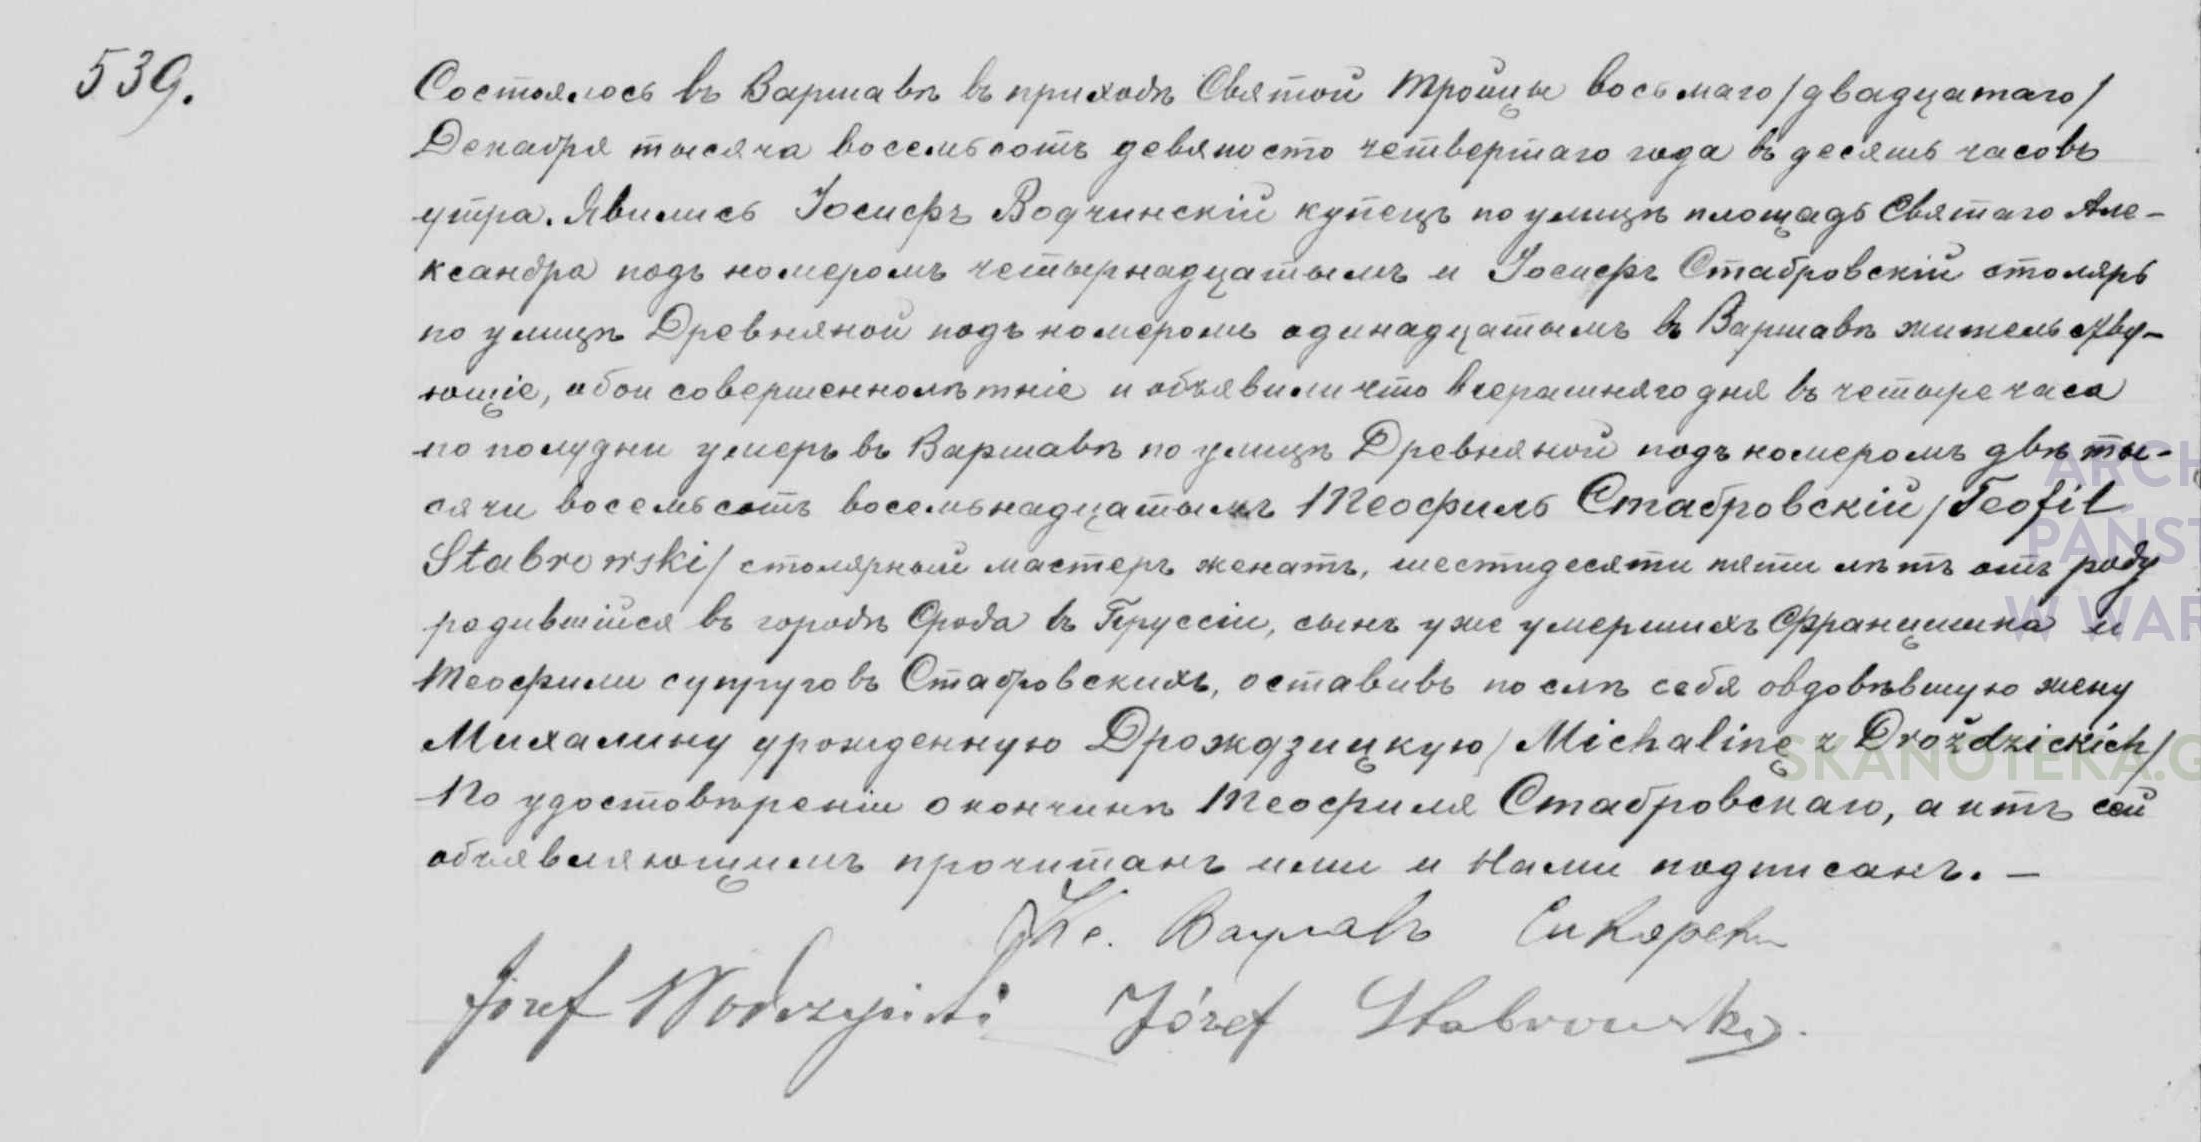 539.
Состоялось въ Варшавѣ въ приходѣ Святой Тройцы восьмаго /двадцатаго/
Декабря тысяча восемьсотъ девяносто четвертаго года въ десять часовъ
утра. Явились Іосифъ Водчинскій купецъ по улицѣ площадь Святаго Але-
ксандра подъ номеромъ четырнадцатымъ и Іосифъ Стабровскій столяръ
по улицѣ Древняной подъ номеромъ одинадцатымъ въ Варшавѣ жительству-
ющіе, обои совершеннолѣтніе и объявили что вчерашняго дня въ четыре часа
по полудни умеръ въ Варшавѣ по улицѣ Древняной подъ номеромъ двѣ ты-
сячи восемьсотъ восемьнадцатымъ Теофиль Стабровскій /Teofil
Stabrowski/ столярный мастеръ женатъ, шестидесяти пяти лѣтъ отъ роду
родившійся въ городѣ Срода въ Пруссіи, сынъ уже умершихъ Францишка и
Теофили супруговъ Стабровскихъ, оставивъ послѣ себя овдовѣвшую жену
Михалину урожденную Дрождзицкую /Michalinę z Drożdzickich/
По удостовѣреніи о кончинѣ Теофиля Стабровскаго, актъ сей
объявляющимъ прочитанъ ими и Нами подписанъ. —
Кс. Вацлавъ
Józef Wodczyński Józef Stabrowski.
ARCH
PAŃST
W WAR
SKANOTEKA.G